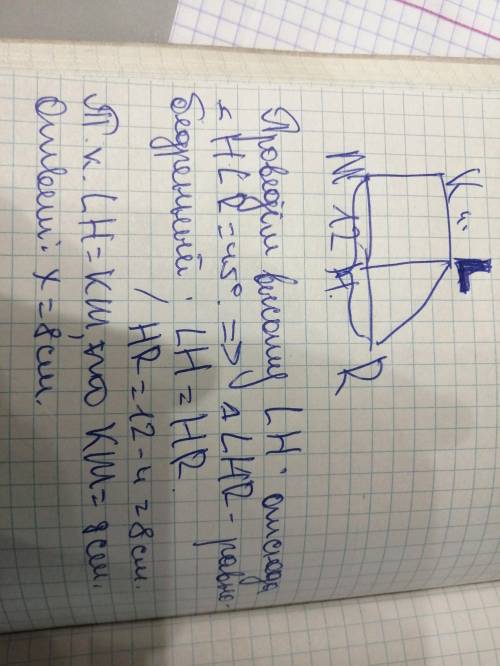 K 4 L
M 12 H R
Проведём высоту LH; отсюда
∠HLR=45°. => △LHR - равно-
бедренный; LH = HR.
HR=12-4=8см.
Т.к. LH=KM, то KM=8см.
Ответ: x=8см.